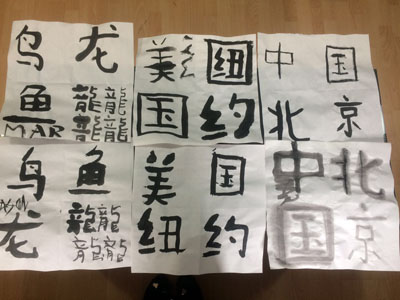 鸟 龙
鱼 龍龍
MAR 龍龍
美 纽
国 约
中 国
北 京
鸟 鱼
龙 龍龍
龍龍龍
美 国
纽 约
中 北
国 京